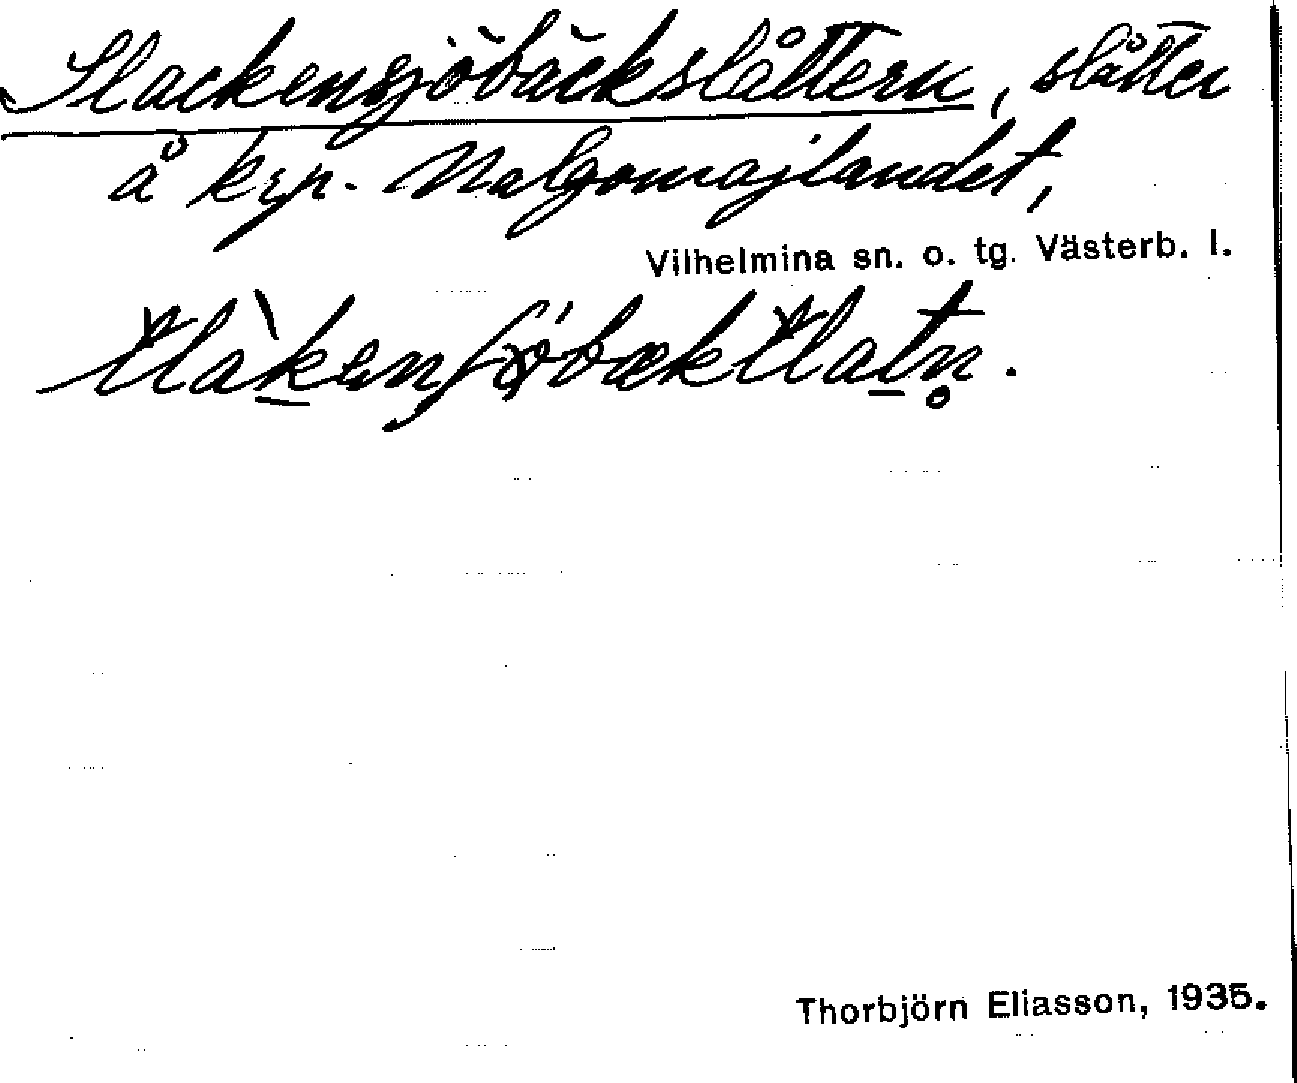 Slackensjöbäckslåttern, slåtter
å krp. Malgomajlandet,
Vilhelmina sn. o. tg. Västerb. l.
Thorbjörn Eliasson, 1935.